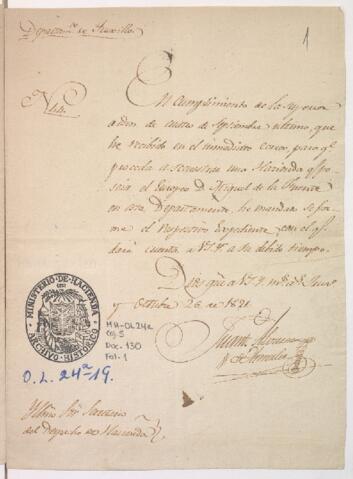 Departam.to de Truxillo
1
En cumplimiento de la suprema
orden de cuatro de Septiembre ultimo, que
he recibido en el inmediato correo, para q.e
proceda a secuestrar una Hacienda q.e po-
seia el Europeo D. Miguel de la Puente
en este Departamento, he mandado se for-
me el respectivo Expediente, con el q.e
daré cuenta a V.S.Y. a su debido tiempo.
Dios gue a V.S.Y. m.s a.s Trux.o
y Octubre 26 de 1821.
MINISTERIO DE HACIENDA
ARCHIVO HISTORICO
MH-OL24a
Caj. 5
Doc. 130
Fol. 1
O.L. 24a-19.
Yltmo Sor Secretario
del Despacho de Hacienda